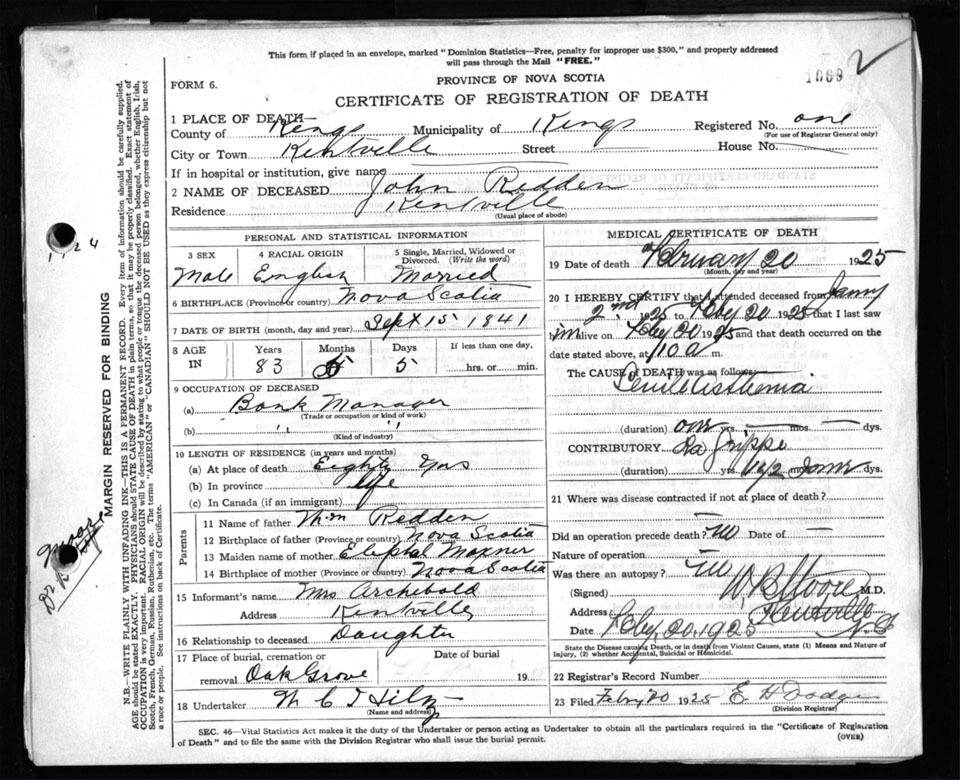 This form if placed in an envelope, marked "Dominion Statistics—Free, penalty for improper use $300," and properly addressed
will pass through the Mail "FREE."
1069 2
FORM 6.
PROVINCE OF NOVA SCOTIA
CERTIFICATE OF REGISTRATION OF DEATH
1 PLACE OF DEATH—
County of Kings Municipality of Kings Registered No. one
(For use of Registrar General only)
City or Town Kentville Street House No.
If in hospital or institution, give name
2 NAME OF DECEASED John Redden
Residence Kentville
(Usual place of abode)
PERSONAL AND STATISTICAL INFORMATION
3 SEX 4 RACIAL ORIGIN 5 Single, Married, Widowed or Divorced. (Write the word)
Male English Married
6 BIRTHPLACE (Province or country) Nova Scotia
7 DATE OF BIRTH (month, day and year) Sept 15 1841
8 AGE IN Years Months Days If less than one day,
83 5 5 hrs. or min.
9 OCCUPATION OF DECEASED
(a) Bank Manager
(Trade or occupation or kind of work)
(b) " "
(Kind of industry)
10 LENGTH OF RESIDENCE (in years and months)
(a) At place of death Eighty Yrs
(b) In province life
(c) In Canada (if an immigrant)
Parents
11 Name of father Wm Redden
12 Birthplace of father (Province or country) Nova Scotia
13 Maiden name of mother Eliphal Maxner
14 Birthplace of mother (Province or country) Nova Scotia
15 Informant's name Mrs Archibald
Address Kentville
16 Relationship to deceased Daughter
17 Place of burial, cremation or removal Oak Grove Date of burial 19
18 Undertaker
(Name and address)
MEDICAL CERTIFICATE OF DEATH
19 Date of death February 20 1925
(Month, day and year)
20 I HEREBY CERTIFY that I attended deceased from Janry
2nd 1925 to Feby 20 1925 that I last saw
him alive on Feby 20 1925 and that death occurred on
date stated above, at 110 a m.
The CAUSE OF DEATH was as follows:
Senile Asthenia
(duration) one yrs. — mos. — dys.
CONTRIBUTORY La Grippe
(duration) yrs. dys.
21 Where was disease contracted if not at place of death?
Did an operation precede death? no Date of —
Nature of operation —
Was there an autopsy? no
(Signed) W B Moore M.D.
Address Kentville N.S
Date Feby 20, 1925
State the Disease causing Death, or in death from Violent Causes, state (1) Means and Nature of
Injury, (2) whether Accidental, Suicidal or Homicidal.
22 Registrar's Record Number
23 Filed Febry 20 1925 E H Dodge
(Division Registrar)
SEC. 46—Vital Statistics Act makes it the duty of the Undertaker or person acting as Undertaker to obtain all the particulars required in the "Certificate of Registration
of Death" and to file the same with the Division Registrar who shall issue the burial permit.
(OVER)
MARGIN RESERVED FOR BINDING
N.B.—WRITE PLAINLY WITH UNFADING INK—THIS IS A PERMANENT RECORD. Every item of information should be carefully supplied.
AGE should be stated EXACTLY. PHYSICIANS should STATE CAUSE OF DEATH in plain terms, so that it may be properly classified. Exact statement of
OCCUPATION is very important. RACIAL ORIGIN will be described by stating to what people or tongue the deceased person belonged, whether English, Irish,
Scotch, French, German, Russian, Ruthenian, etc. The terms "AMERICAN" or "CANADIAN" SHOULD NOT BE USED as they express citizenship but not
a race or people. See instructions on back of Certificate.